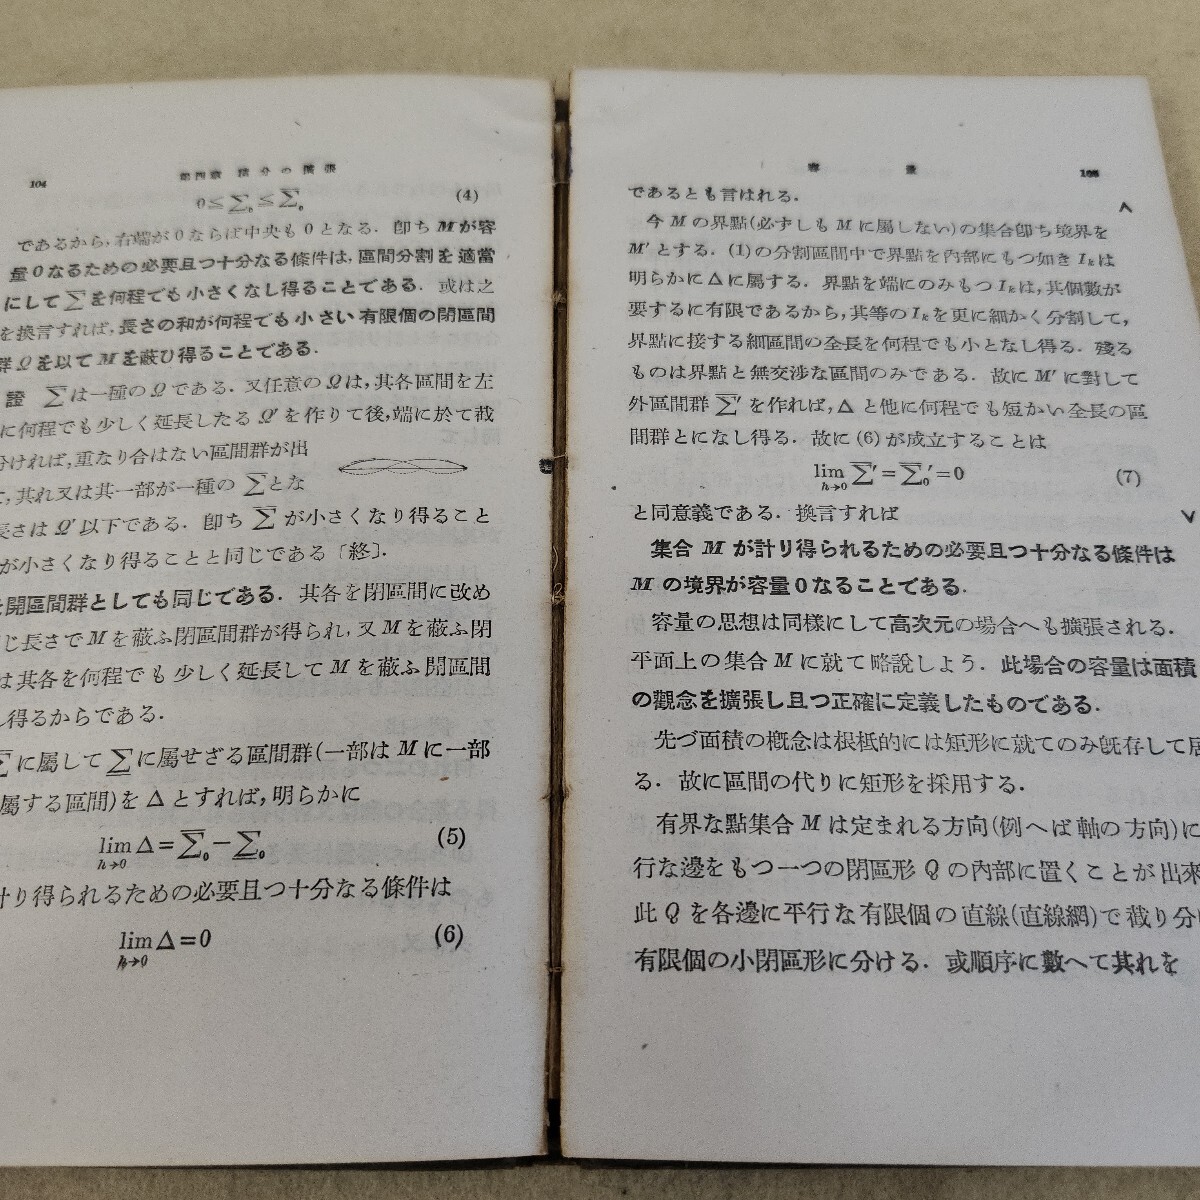 104
第四章 積分の擴張
0≦Σ₀≦Σ̅₀ (4)
であるから,右端が0ならば中央も0となる. 卽ち M が容
量0なるための必要且つ十分なる條件は,區間分割を適當
にして Σ̅ を何程でも小さくなし得ることである. 或は之
を換言すれば,長さの和が何程でも小さい有限個の閉區間
群 Ω を以て M を蔽ひ得ることである.
證 Σ̅ は一種の Ω である. 又任意の Ω は,其各區間を左
に何程でも少しく延長したる Ω′ を作りて後,端に於て截
分ければ,重なり合はない區間群が出
,其れ又は其一部が一種の Σ̅ とな
長さは Ω′ 以下である. 卽ち Σ̅ が小さくなり得ること
が小さくなり得ることと同じである〔終〕.
を開區間群としても同じである. 其各を閉區間に改め
じ長さで M を蔽ふ閉區間群が得られ,又 M を蔽ふ閉
は其各を何程でも少しく延長して M を蔽ふ開區間
し得るからである.
Σ̅ に屬して Σ に屬せざる區間群(一部は M に一部
屬する區間)を Δ とすれば,明らかに
lim Δ=Σ̅₀−Σ₀ (5)
h→0
計り得られるための必要且つ十分なる條件は
lim Δ=0 (6)
h→0
容量
105
であるとも言はれる.
今 M の界點(必ずしも M に屬しない)の集合卽ち境界を
M′ とする. (1)の分割區間中で界點を內部にもつ如き Iₖ は
明らかに Δ に屬する. 界點を端にのみもつ Iₖ は,其個數が
要するに有限であるから,其等の Iₖ を更に細かく分割して,
界點に接する細區間の全長を何程でも小となし得る. 殘る
ものは界點と無交涉な區間のみである. 故に M′ に對して
外區間群 Σ̅′ を作れば,Δ と他に何程でも短かい全長の區
間群とになし得る. 故に (6) が成立することは
lim Σ̅′=Σ̅₀′=0 (7)
h→0
と同意義である. 換言すれば
集合 M が計り得られるための必要且つ十分なる條件は
M の境界が容量0なることである.
容量の思想は同樣にして高次元の場合へも擴張される.
平面上の集合 M に就て略說しよう. 此場合の容量は面積
の觀念を擴張し且つ正確に定義したものである.
先づ面積の槪念は根柢的には矩形に就てのみ旣存して居
る. 故に區間の代りに矩形を採用する.
有界な點集合 M は定まれる方向(例へば軸の方向)に
行な邊をもつ一つの閉區形 Q の內部に置くことが出來
此 Q を各邊に平行な有限個の直線(直線網)で截り分け
有限個の小閉區形に分ける. 或順序に數へて其れを